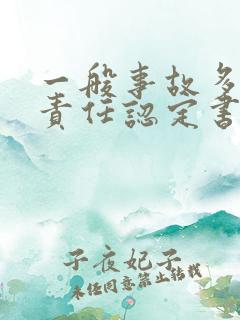 一般事故多
責任認定書
子夜妃子
未经同意禁止转载